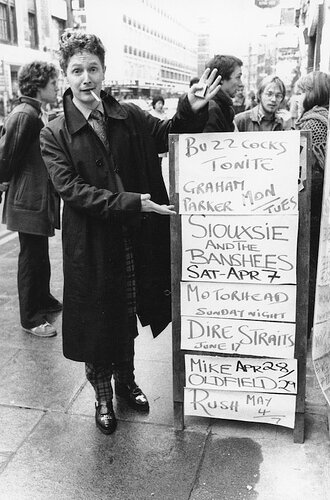 BUZZCOCKS
TONITE
GRAHAM
PARKER MON/
TUES
SIOUXSIE
AND THE
BANSHEES
SAT-APR 7
MOTORHEAD
SUNDAY NIGHT
DIRE STRAITS
JUNE 17
MIKE APR 28/
OLDFIELD 29
RUSH MAY
4